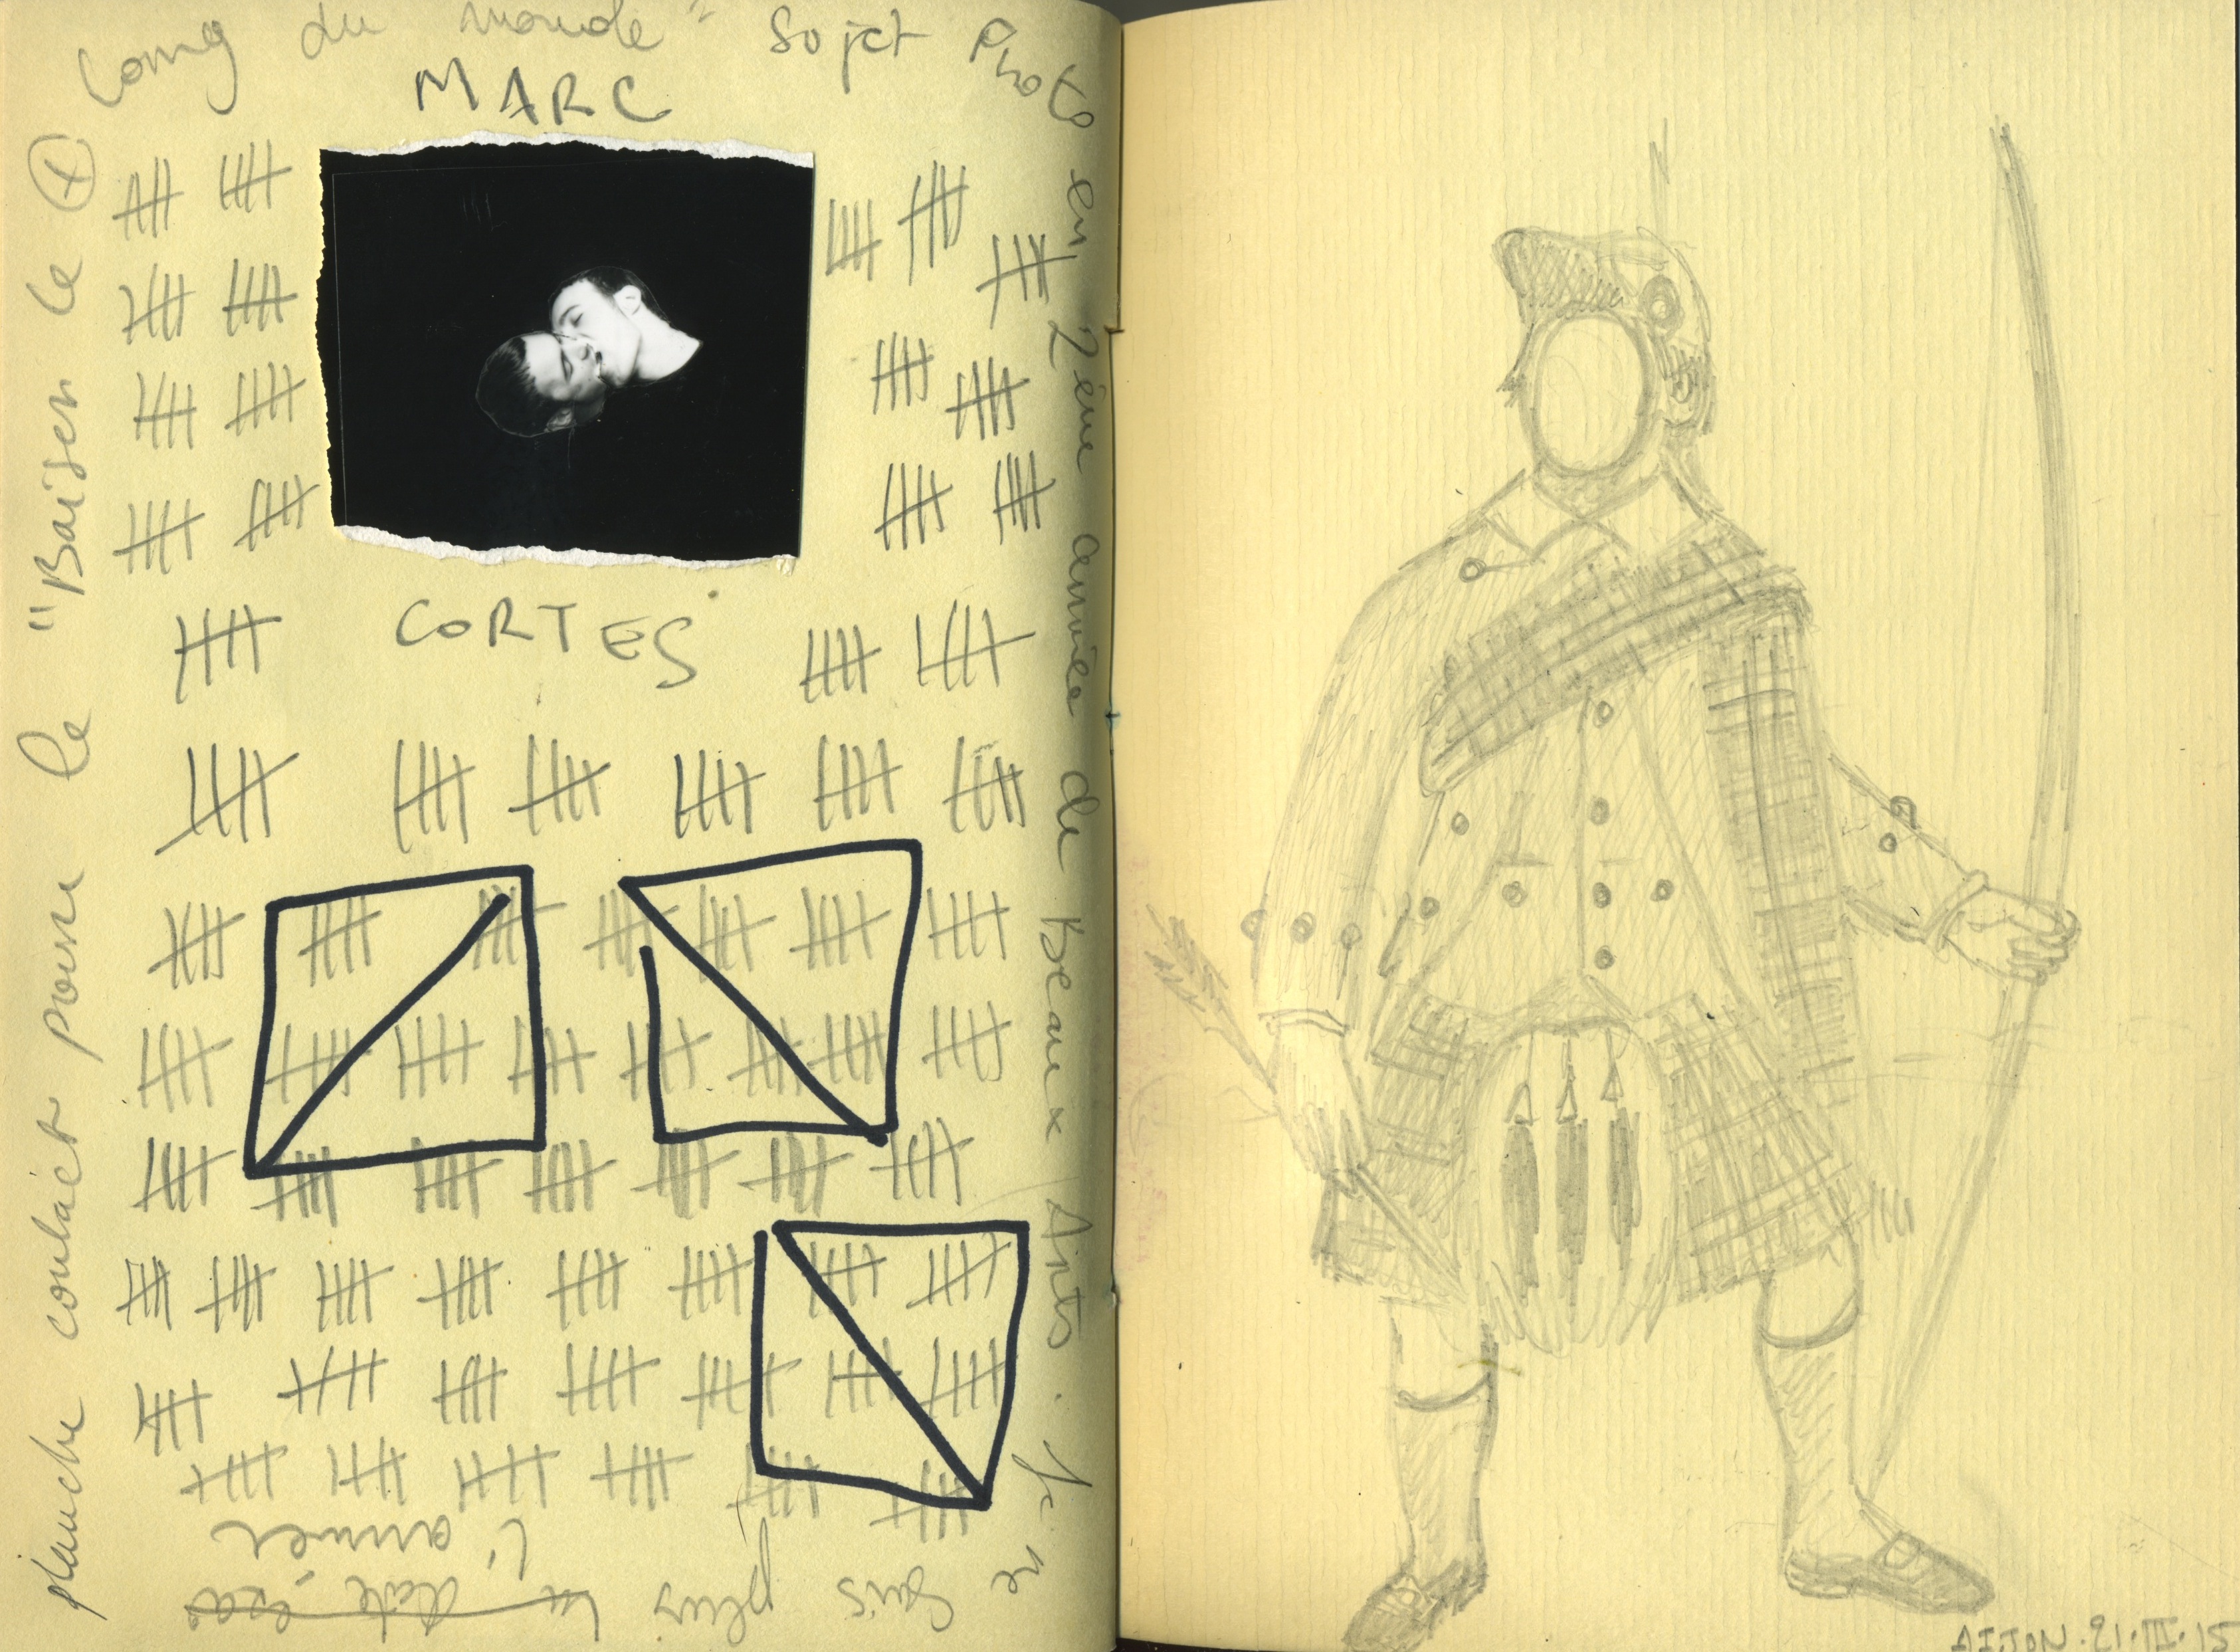 planche contact pour le "Baiser le +
long du monde" Sujet Photo
en 2ème année de Beaux Arts. Je ne
sais plus la date exa
l'année
MARC
CORTES
21.III.15